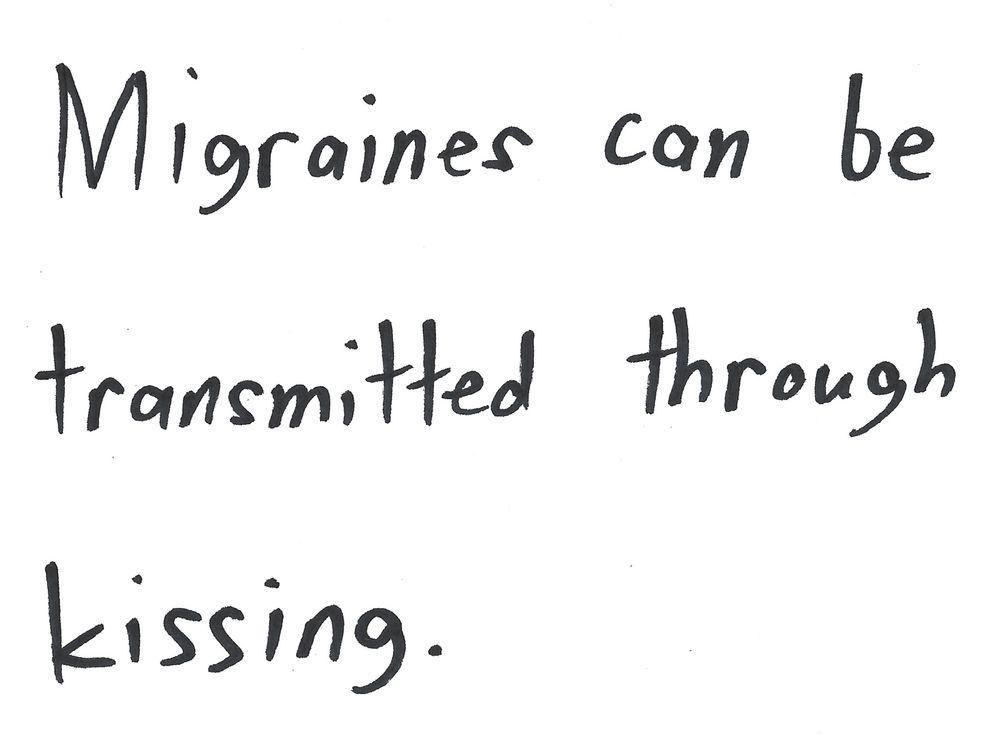 Migraines can be
transmitted through
kissing.